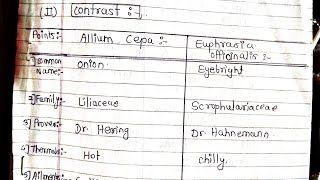 (II) Contrast :-
Points:- Allium Cepa :- Euphrasia officinalis :-
1) Common name:- onion. Eyebright
2) Family:- Liliaceae Scrophulariaceae
3) Prover:- Dr Hering Dr Hahnemann
4) Thermals:- Hot chilly.
5) Ailments